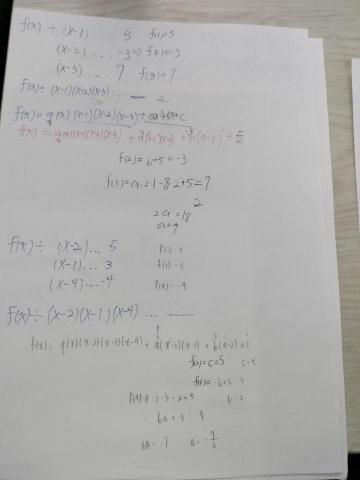 f(x) ÷ (x-1) ... 5 f(1)=5
(x-2) ... -3 ⇒ f(2)=-3
(x-3) ... 7 f(3)=7
f(x)÷ (x-1)(x-2)(x-3) ...
f(x)=q(x)(x-1)(x-2)(x-3)+ax²+bx+c
f(x) = q(x)(x-1)(x-2)(x-3) + a(x-1)(x-2) + (x-1) + 5
f(2) = b+5 = -3
f(3)=a·2·1-8·2+5=7
2
2a =18
a=9
f(x) ÷ (x-2) ... 5 f(2)=5
(x-1) ... 3 f(1)=3
(x-4) ... -4 f(4)=-4
f(x) ÷ (x-2)(x-1)(x-4) ...
f(x)= q(x)(x-2)(x-1)(x-4) + a(x-2)(x-1) + b(x-2) + c
f(2)=c=5 c=5
f(1)= -b+5=3
b=2